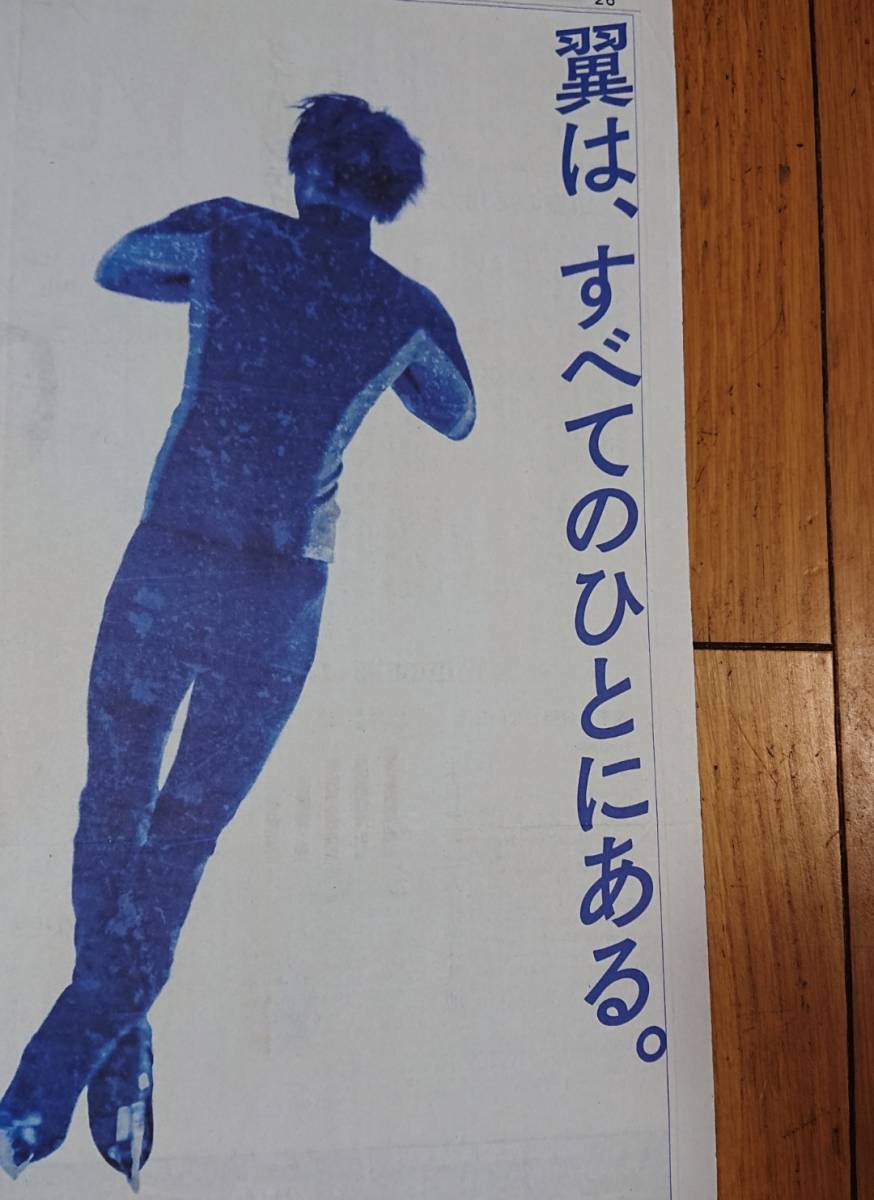 26
翼は、すべてのひとにある。